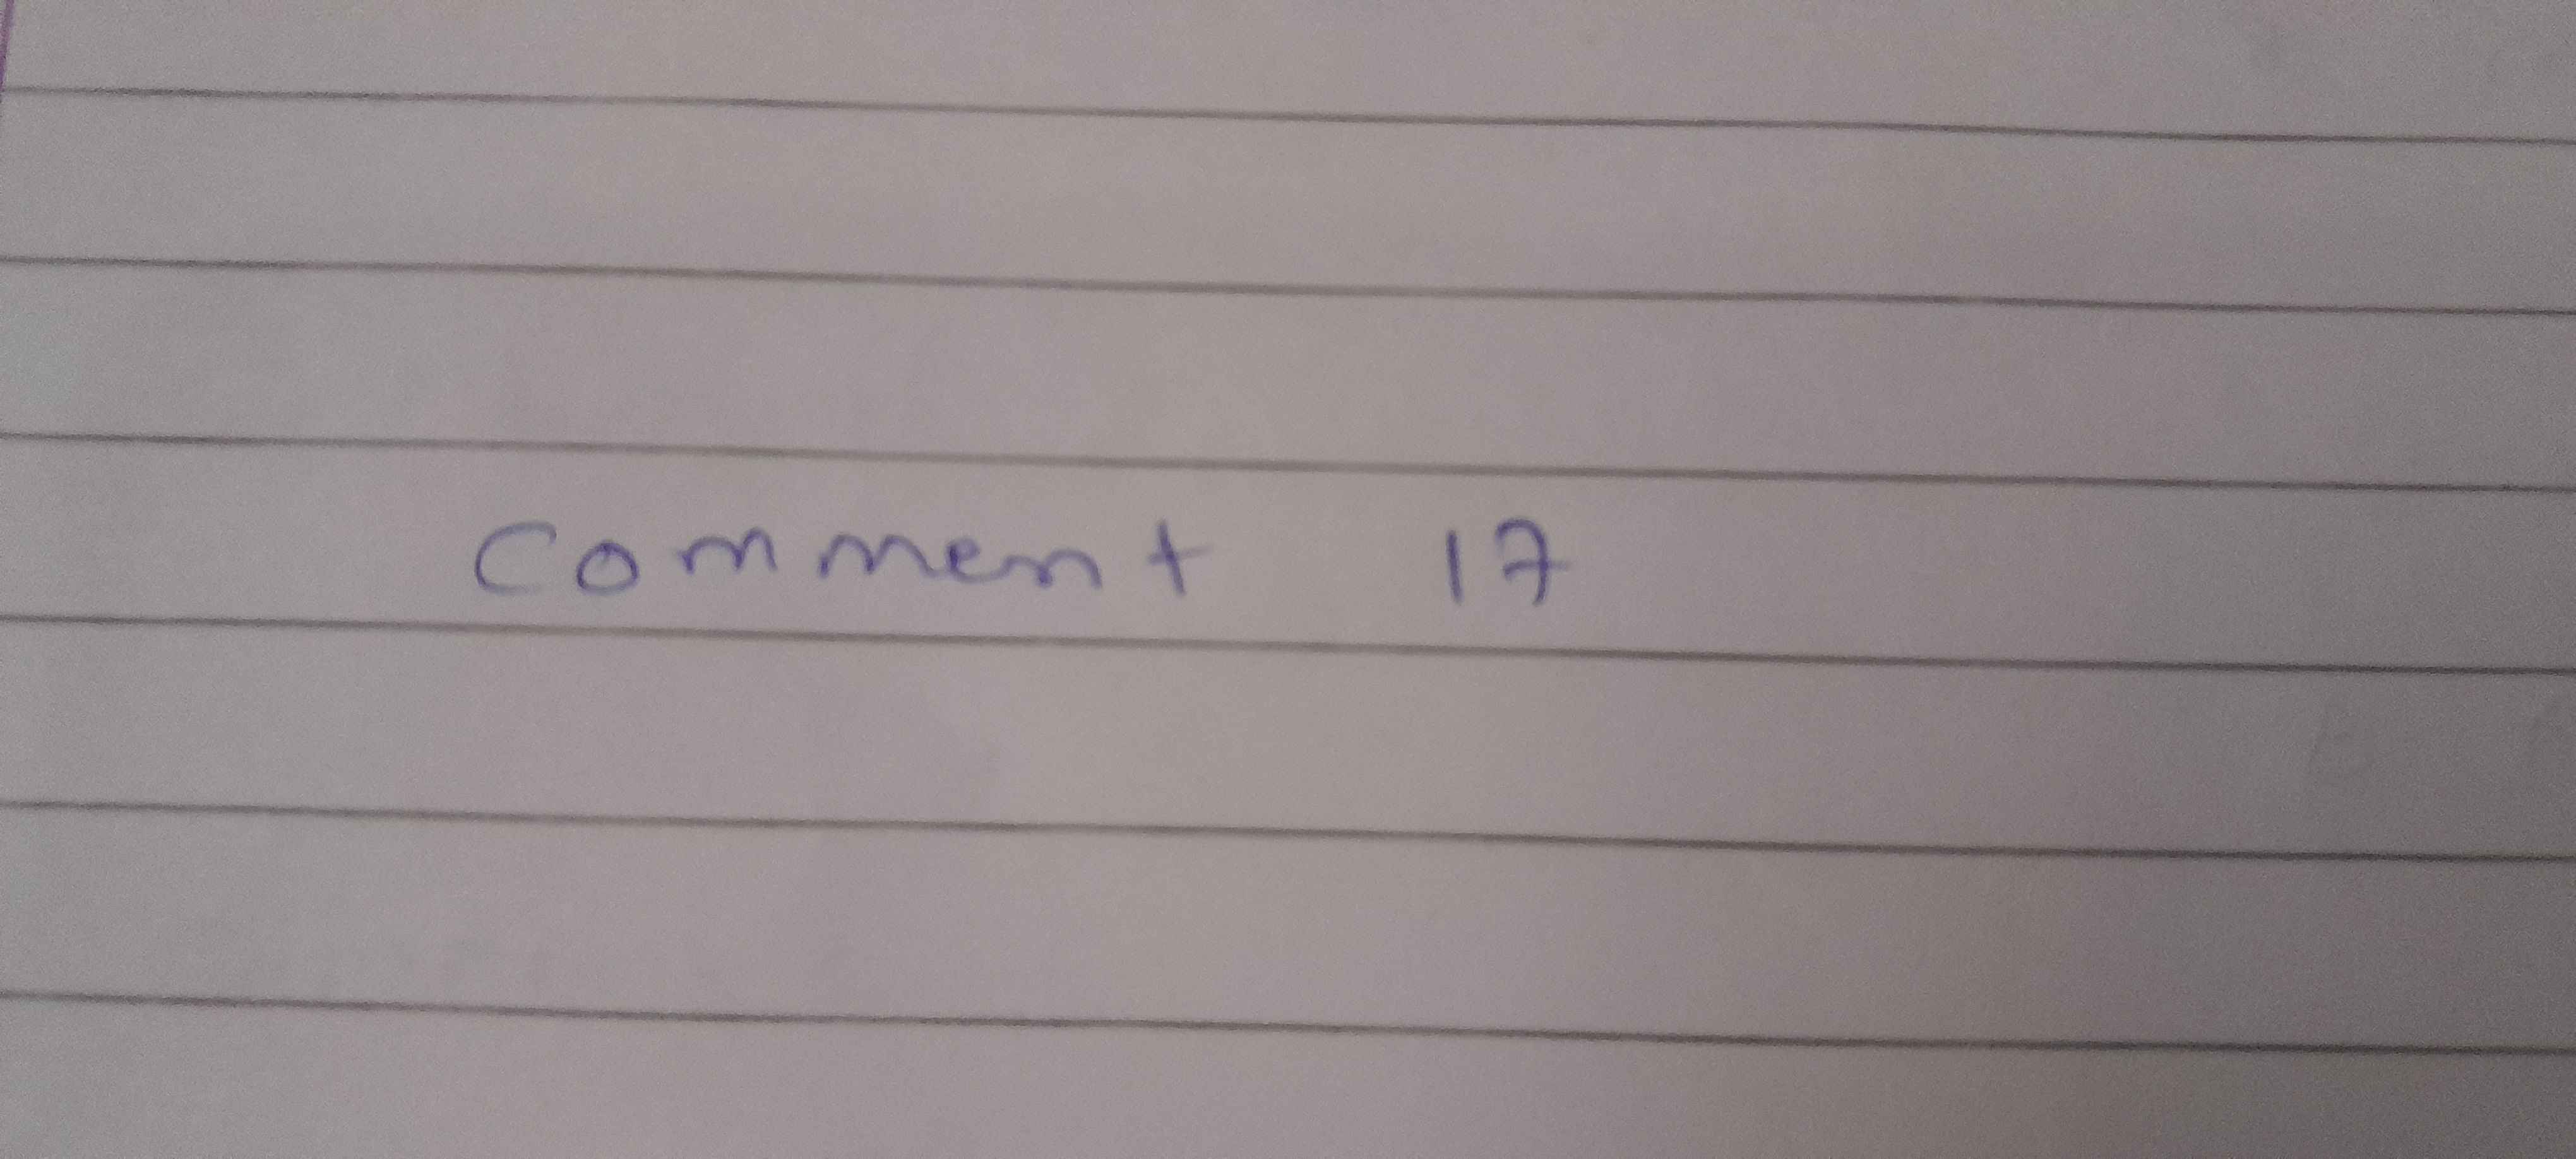 Comment 17